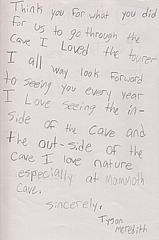 Think you for what you did
for us to go through the
cave I Loved the tourer
I all way look forward
to seeing you every year
I Love seeing the in-
side of the cave and
the out-side of the
cave I love nature
especially at Mammoth
Cave.
sincerely,
Tyson
meredith